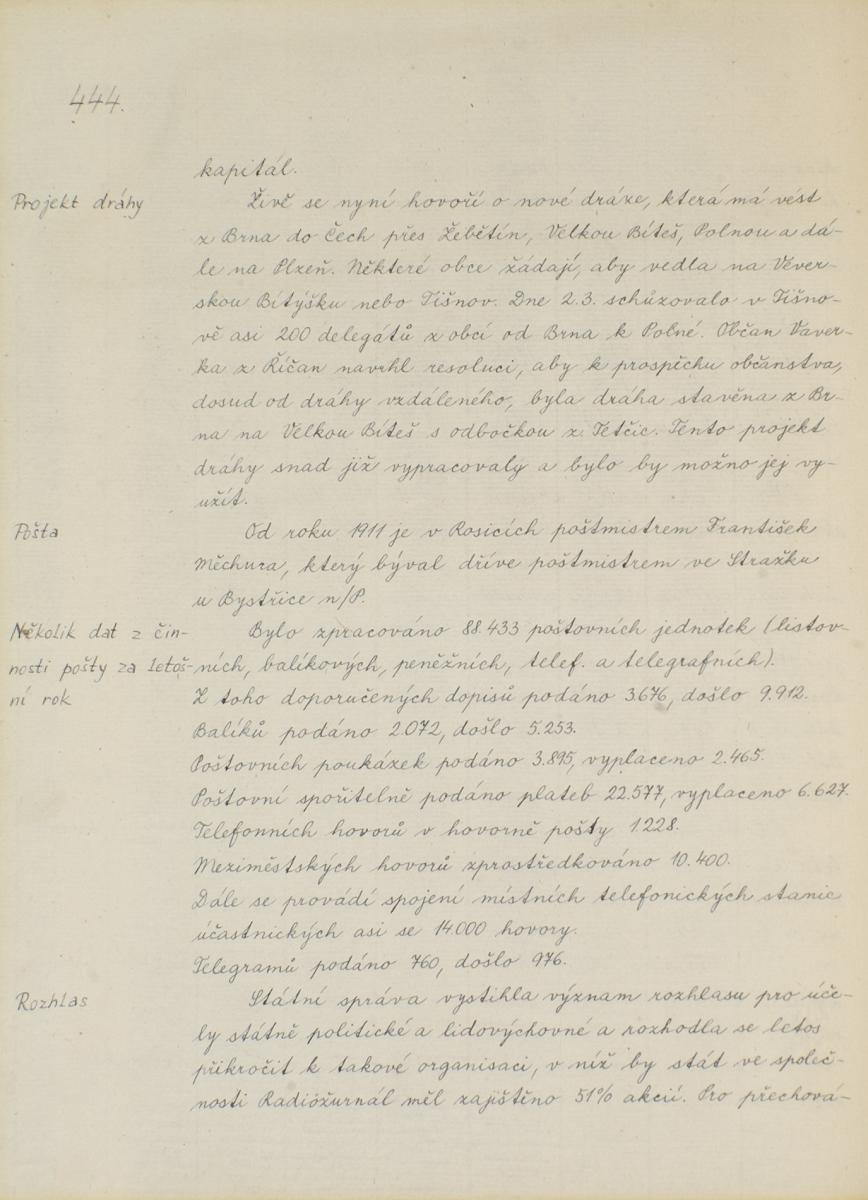 444.
kapitál.
Projekt dráhy
Živě se nyní hovoří o nové dráze, která má vést
z Brna do Čech přes Žebětín, Velkou Bíteš, Polnou a dá-
le na Plzeň. Některé obce žádají, aby vedla na Vever-
skou Bítýšku nebo Tišnov. Dne 2.3. schůzovalo v Tišno-
vě asi 200 delegátů z obcí od Brna k Polné. Občan Vaver-
ka z Říčan navrhl resoluci, aby k prospěchu občanstva,
dosud od dráhy vzdáleného, byla dráha stavěna z Br-
na na Velkou Bíteš s odbočkou z Tetčic. Tento projekt
dráhy snad již vypracovaly a bylo by možno jej vy-
užít.
Pošta
Od roku 1911 je v Rosicích poštmistrem František
Měchura, který býval dříve poštmistrem ve Stražku
u Bystřice n/P.
Několik dat z čin-
nosti pošty za letoš-
ní rok
Bylo zpracováno 88.433 poštovních jednotek (listov-
ních, balíkových, peněžních, telef. a telegrafních).
Z toho doporučených dopisů podáno 3676, došlo 9.912.
Balíků podáno 2.072, došlo 5.253.
Poštovních poukázek podáno 3.895, vyplaceno 2.465.
Poštovní spořitelně podáno plateb 22.577, vyplaceno 6.627.
Telefonních hovorů v hovorně pošty 1228.
Meziměstských hovorů zprostředkováno 10.400.
Dále se provádí spojení místních telefonických stanic
účastnických asi se 14.000 hovory.
Telegramů podáno 760, došlo 976.
Rozhlas
Státní správa vystihla význam rozhlasu pro úče-
ly státně politické a lidovýchovné a rozhodla se letos
přikročit k takové organisaci, v níž by stát ve společ-
nosti Radiožurnál měl zajištěno 51% akcií. Pro přechová-